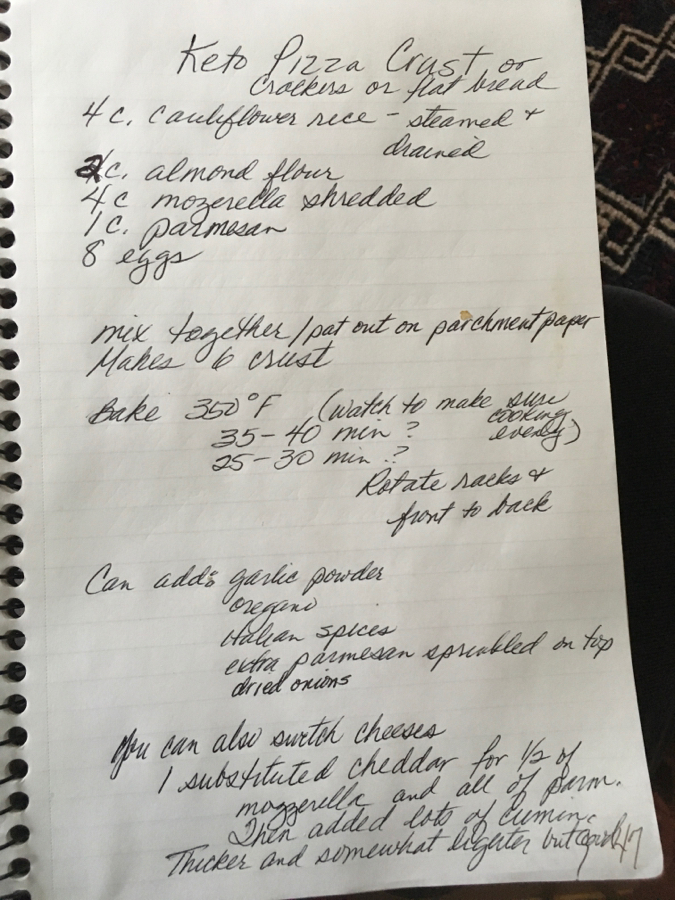 Keto Pizza Crust or
Crackers or flat bread
4 c. cauliflower rice - steamed +
drained
2 c. almond flour
4 c mozerella shredded
1 c. parmesan
8 eggs
mix together / pat out on parchment paper
Makes 6 crust
Bake 350°F (watch to make sure
cooking
35-40 min ? evenly)
25-30 min.?
Rotate racks +
front to back
Can add: garlic powder
oregano
italian spices
extra parmesan sprinkled on top
dried onions
You can also switch cheeses
I substituted cheddar for 1/2 of
mozzerella and all of parm.
Then added lots of cumin.
Thicker and somewhat lighter but good
47